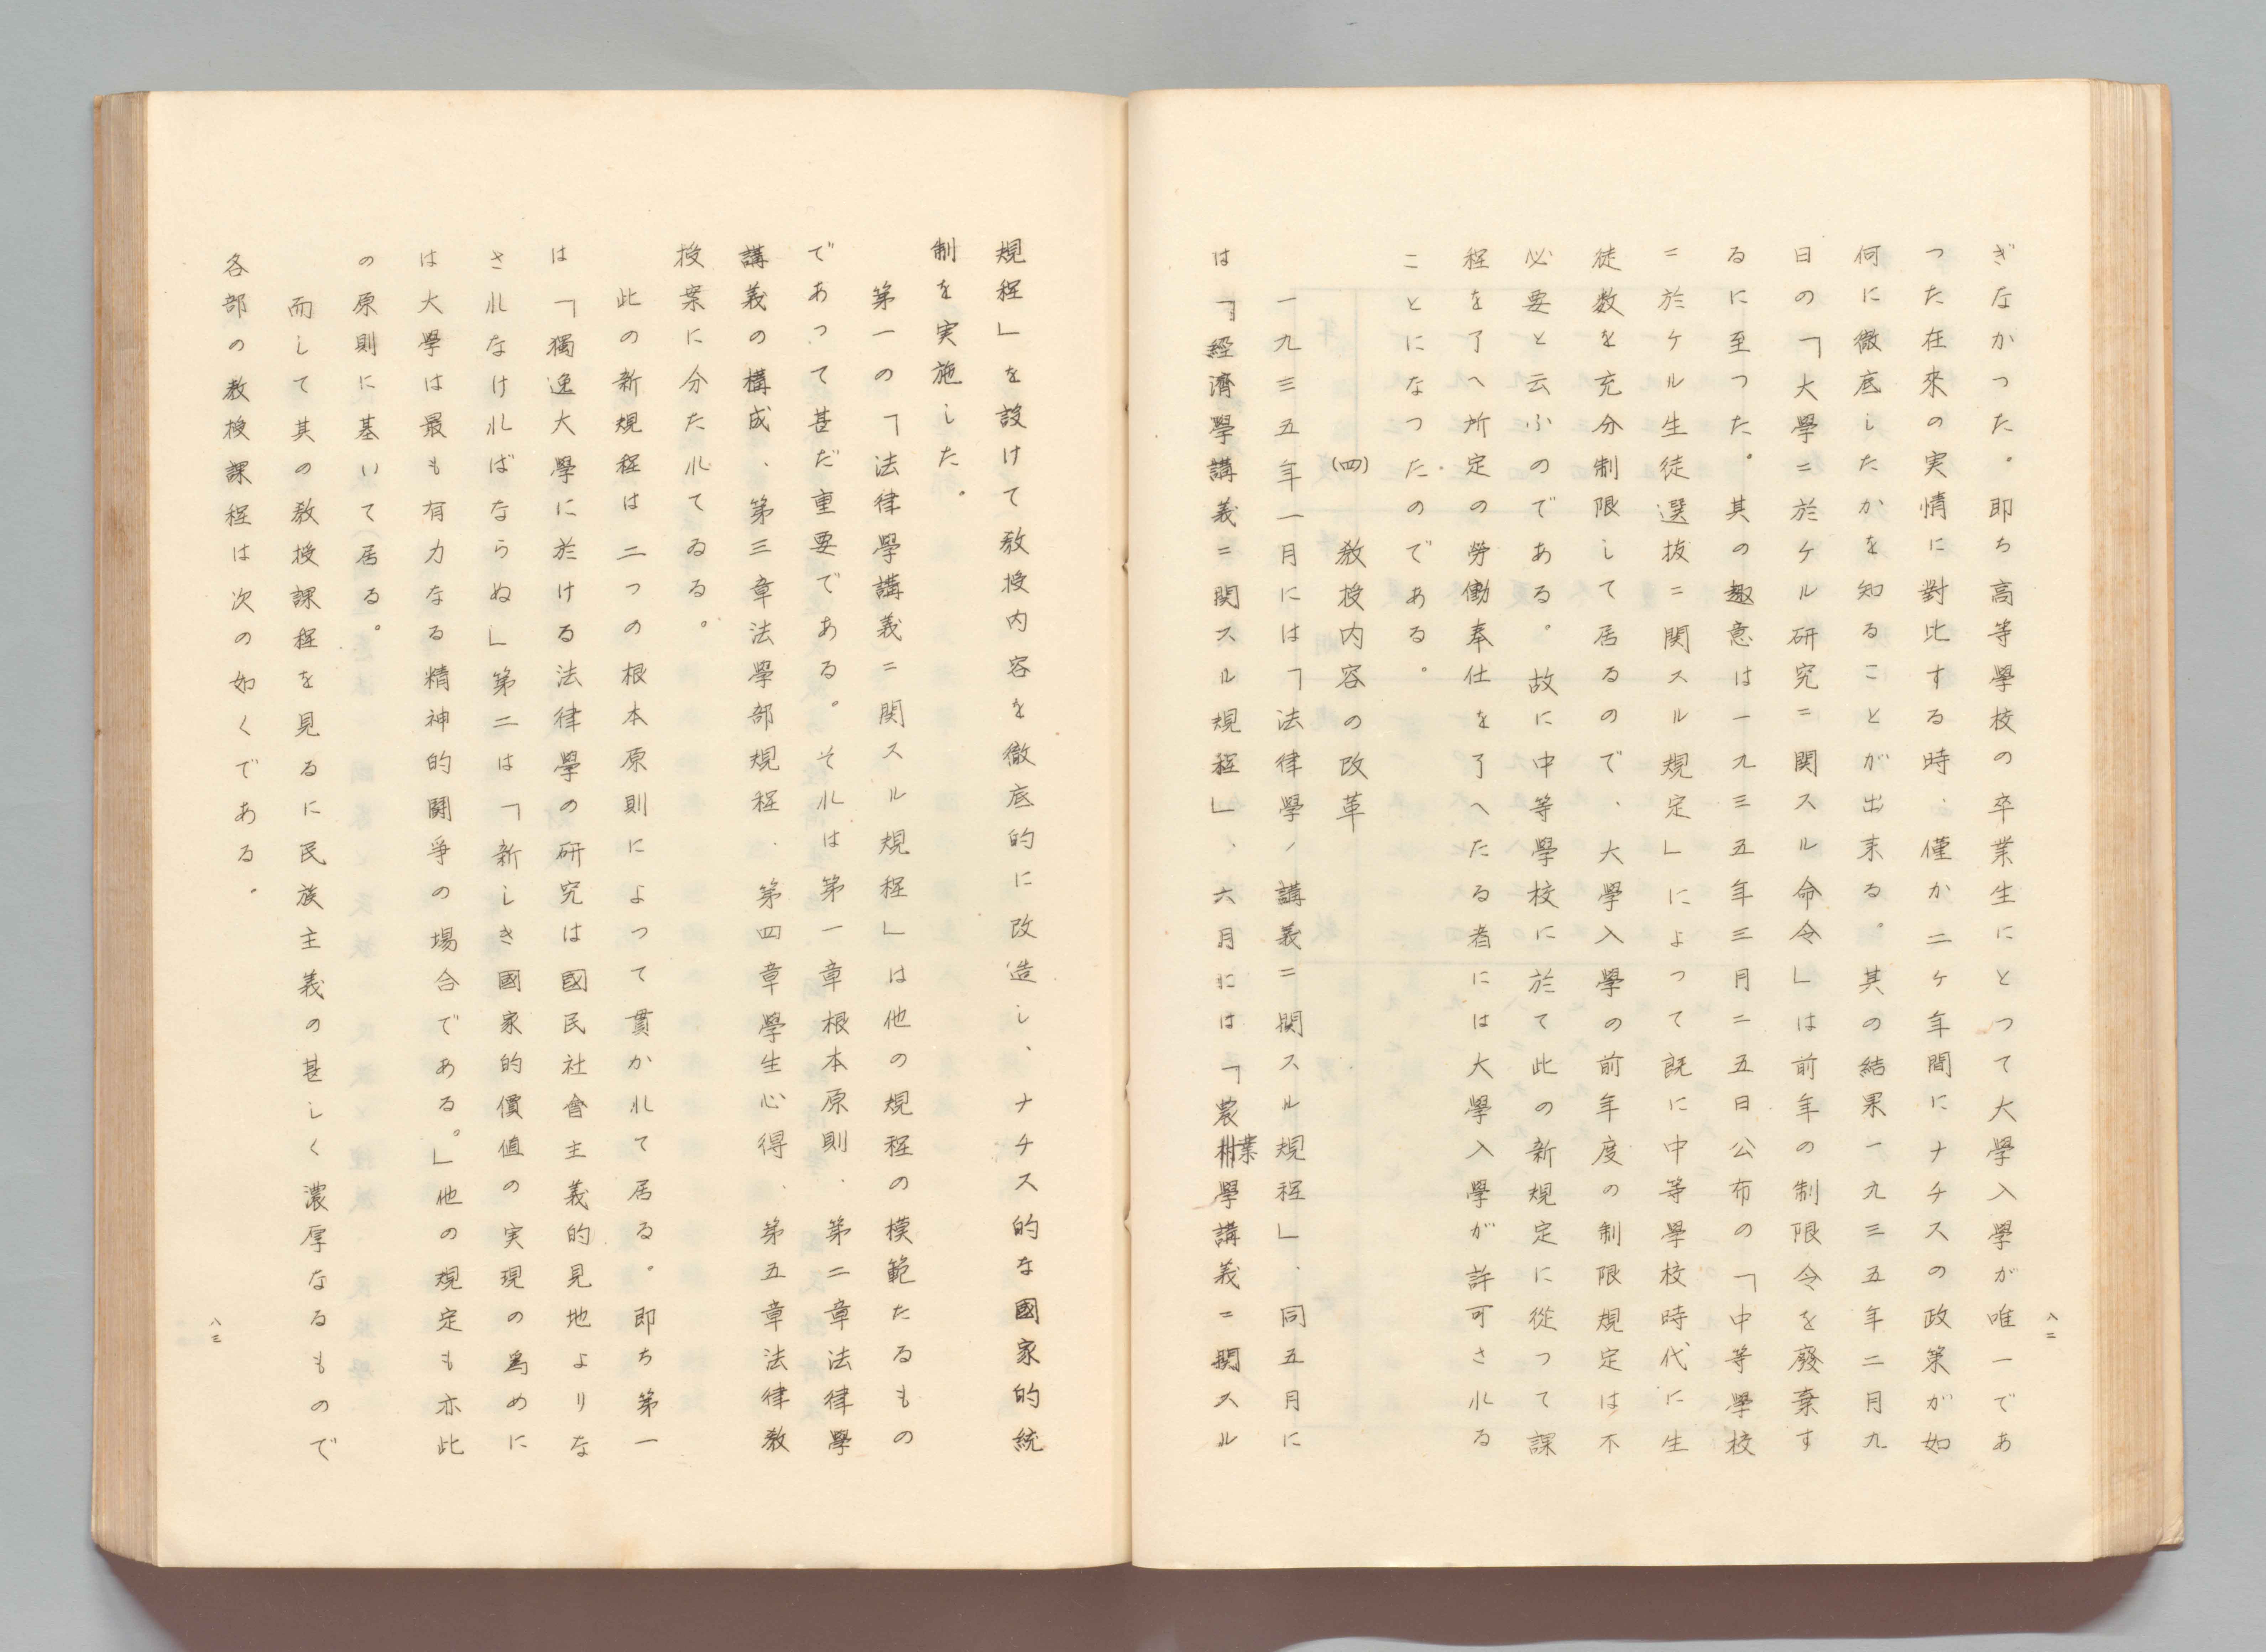 八二
ぎなかつた。即ち高等學校の卒業生にとつて大學入學が唯一であ
つた在來の実情に對比する時、僅か二ヶ年間にナチスの政策が如
何に徹底したかを知ることが出来る。其の結果一九三五年二月九
日の「大學ニ於ケル研究ニ関スル命令」は前年の制限令を廢棄す
るに至つた。其の趣意は一九三五年三月二五日公布の「中等學校
ニ於ケル生徒選抜ニ関スル規定」によつて既に中等學校時代に生
徒数を充分制限して居るので、大學入學の前年度の制限規定は不
必要と云ふのである。故に中等學校に於て此の新規定に從つて課
程を了へ所定の勞働奉仕を了へたる者には大學入學が許可される
ことになつたのである。
(四) 教授内容の改革
一九三五年一月には「法律學ノ講義ニ関スル規程」、同五月に
は「経濟學講義ニ関スル規程」、六月には「農業學講義ニ関スル
規程」を設けて教授内容を徹底的に改造し、ナチス的な國家的統
制を実施した。
第一の「法律學講義ニ関スル規程」は他の規程の模範たるもの
であつて甚だ重要である。それは第一章根本原則、第二章法律學
講義の構成、第三章法學部規程、第四章學生心得、第五章法律教
授案に分たれてゐる。
此の新規程は二つの根本原則によつて貫かれて居る。即ち第一
は「獨逸大學に於ける法律學の研究は國民社會主義的見地よりな
されなければならぬ」第二は「新しき國家的價値の実現の為めに
は大學は最も有力なる精神的鬪爭の場合である。」他の規定も亦此
の原則に基いて居る。
而して其の教授課程を見るに民族主義の甚しく濃厚なるもので
各部の教授課程は次の如くである。
八三